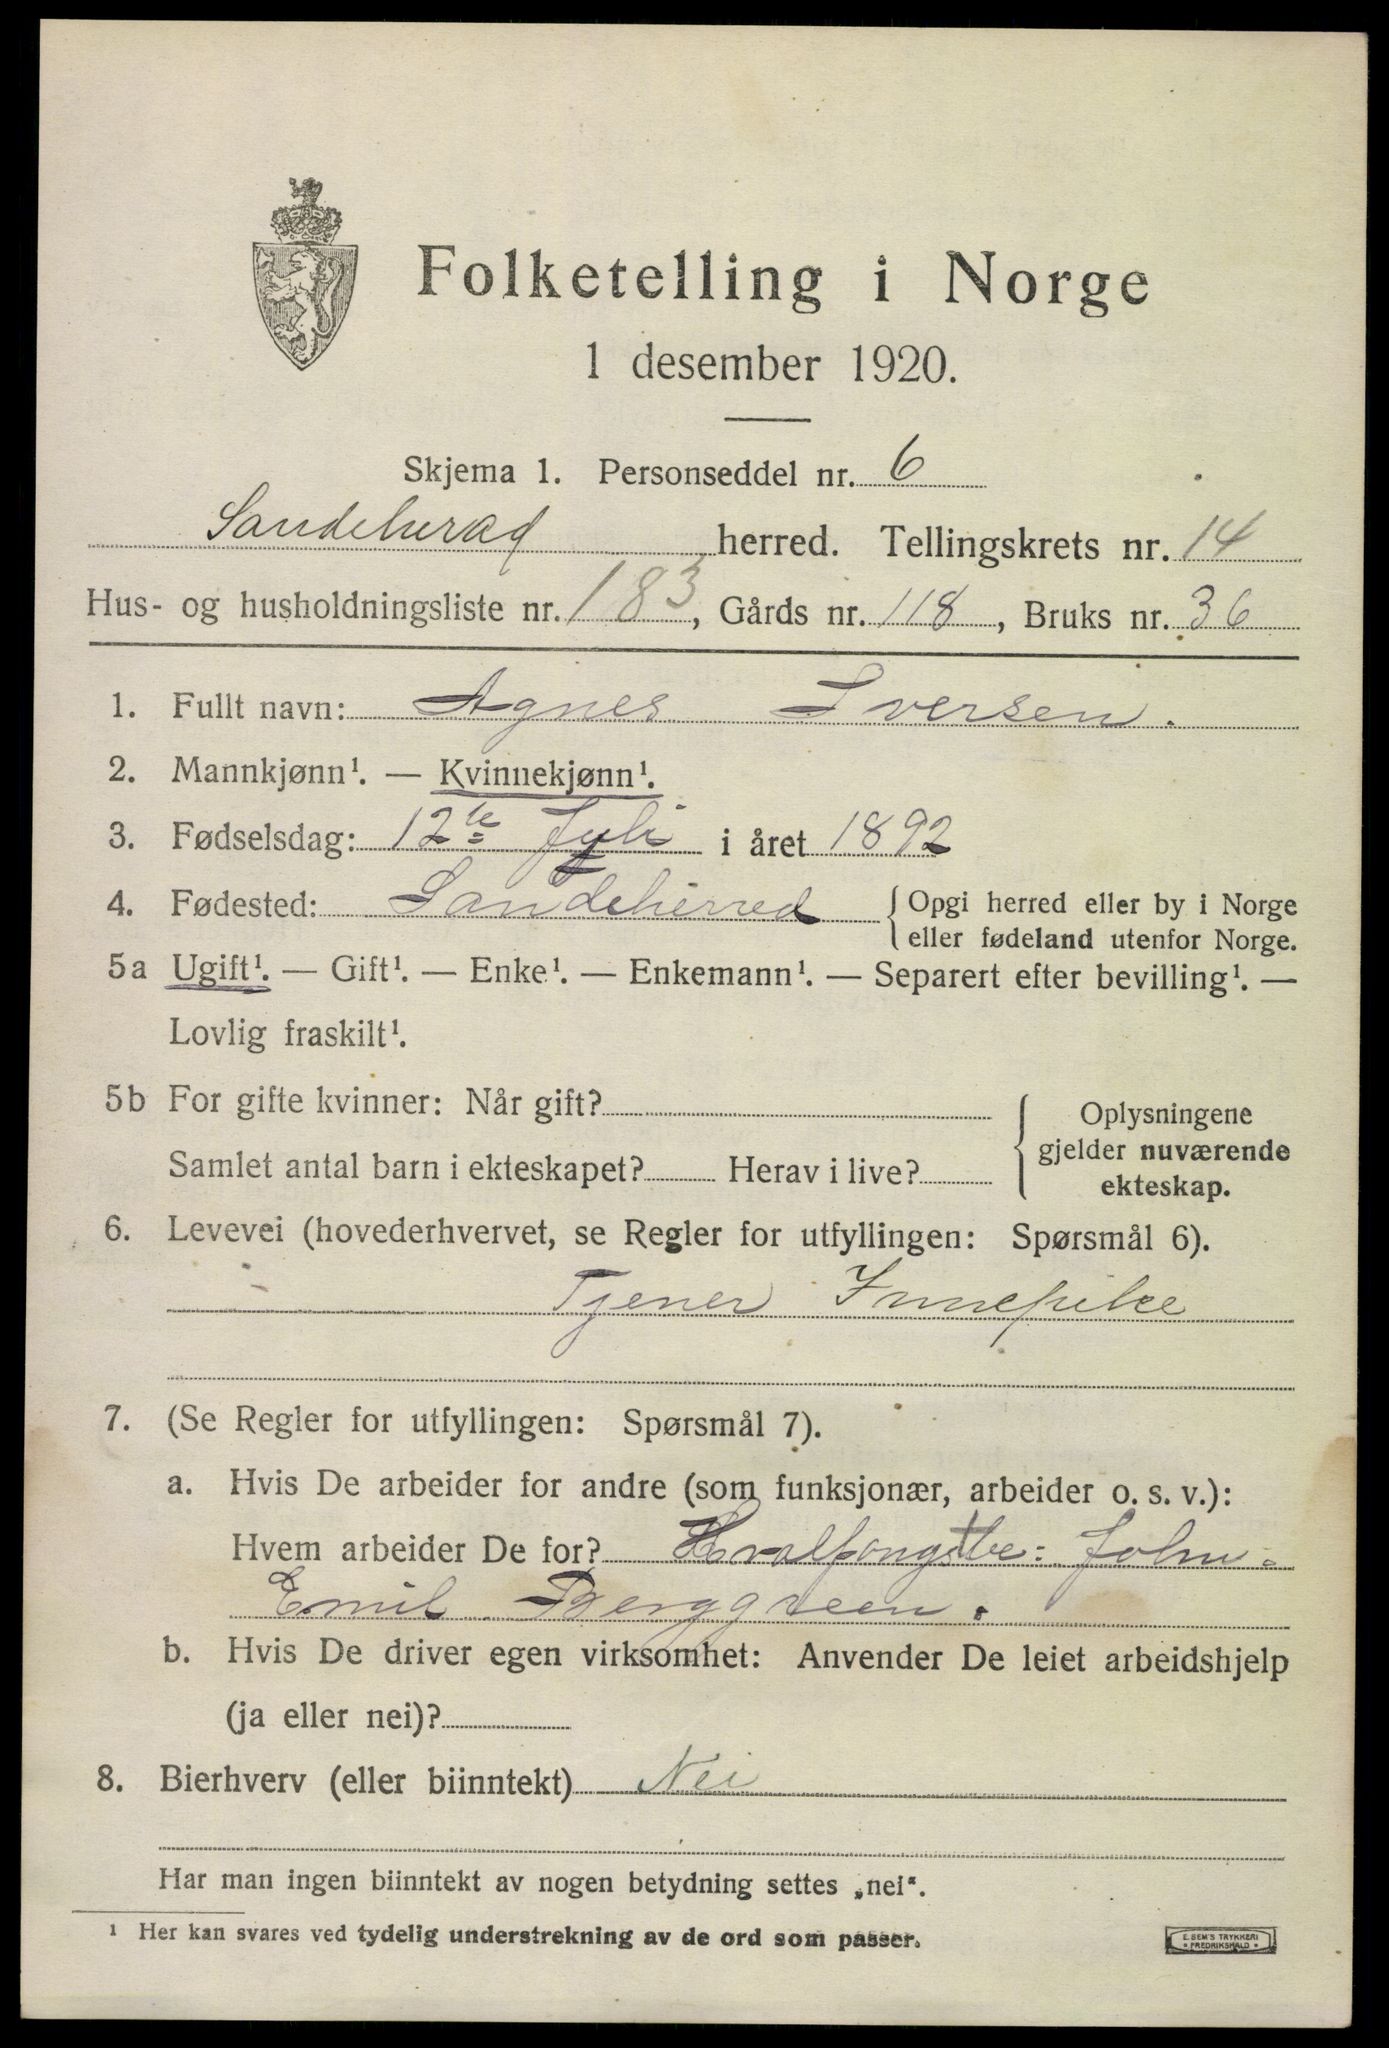 Folketelling i Norge
1 desember 1920.
Skjema 1. Personseddel nr. 6
Sandeherad herred. Tellingskrets nr. 14
Hus- og husholdningsliste nr. 183, Gårds nr. 118, Bruks nr. 36
1. Fullt navn: Agnes Iversen.
2. Mannkjønn¹. — Kvinnekjønn¹.
3. Fødselsdag: 12te Juli i året 1892
4. Fødested: Sandeherred { Opgi herred eller by i Norge
eller fødeland utenfor Norge.
5a Ugift¹. — Gift¹. — Enke¹. — Enkemann¹. — Separert efter bevilling¹. —
Lovlig fraskilt¹.
5b For gifte kvinner: Når gift?
Samlet antal barn i ekteskapet? Herav i live?
Oplysningene
gjelder nuværende
ekteskap.
6. Levevei (hovederhvervet, se Regler for utfyllingen: Spørsmål 6).
Tjener Innepike
7. (Se Regler for utfyllingen: Spørsmål 7).
a. Hvis De arbeider for andre (som funksjonær, arbeider o. s. v.):
Hvem arbeider De for? Hvalfangstbe: John.
Emil Berggreen.
b. Hvis De driver egen virksomhet: Anvender De leiet arbeidshjelp
(ja eller nei)?
8. Bierhverv (eller biinntekt) Nei
Har man ingen biinntekt av nogen betydning settes „nei“.
¹ Her kan svares ved tydelig understrekning av de ord som passer.
E. SEM'S TRYKKERI
• FREDRIKSHALD •